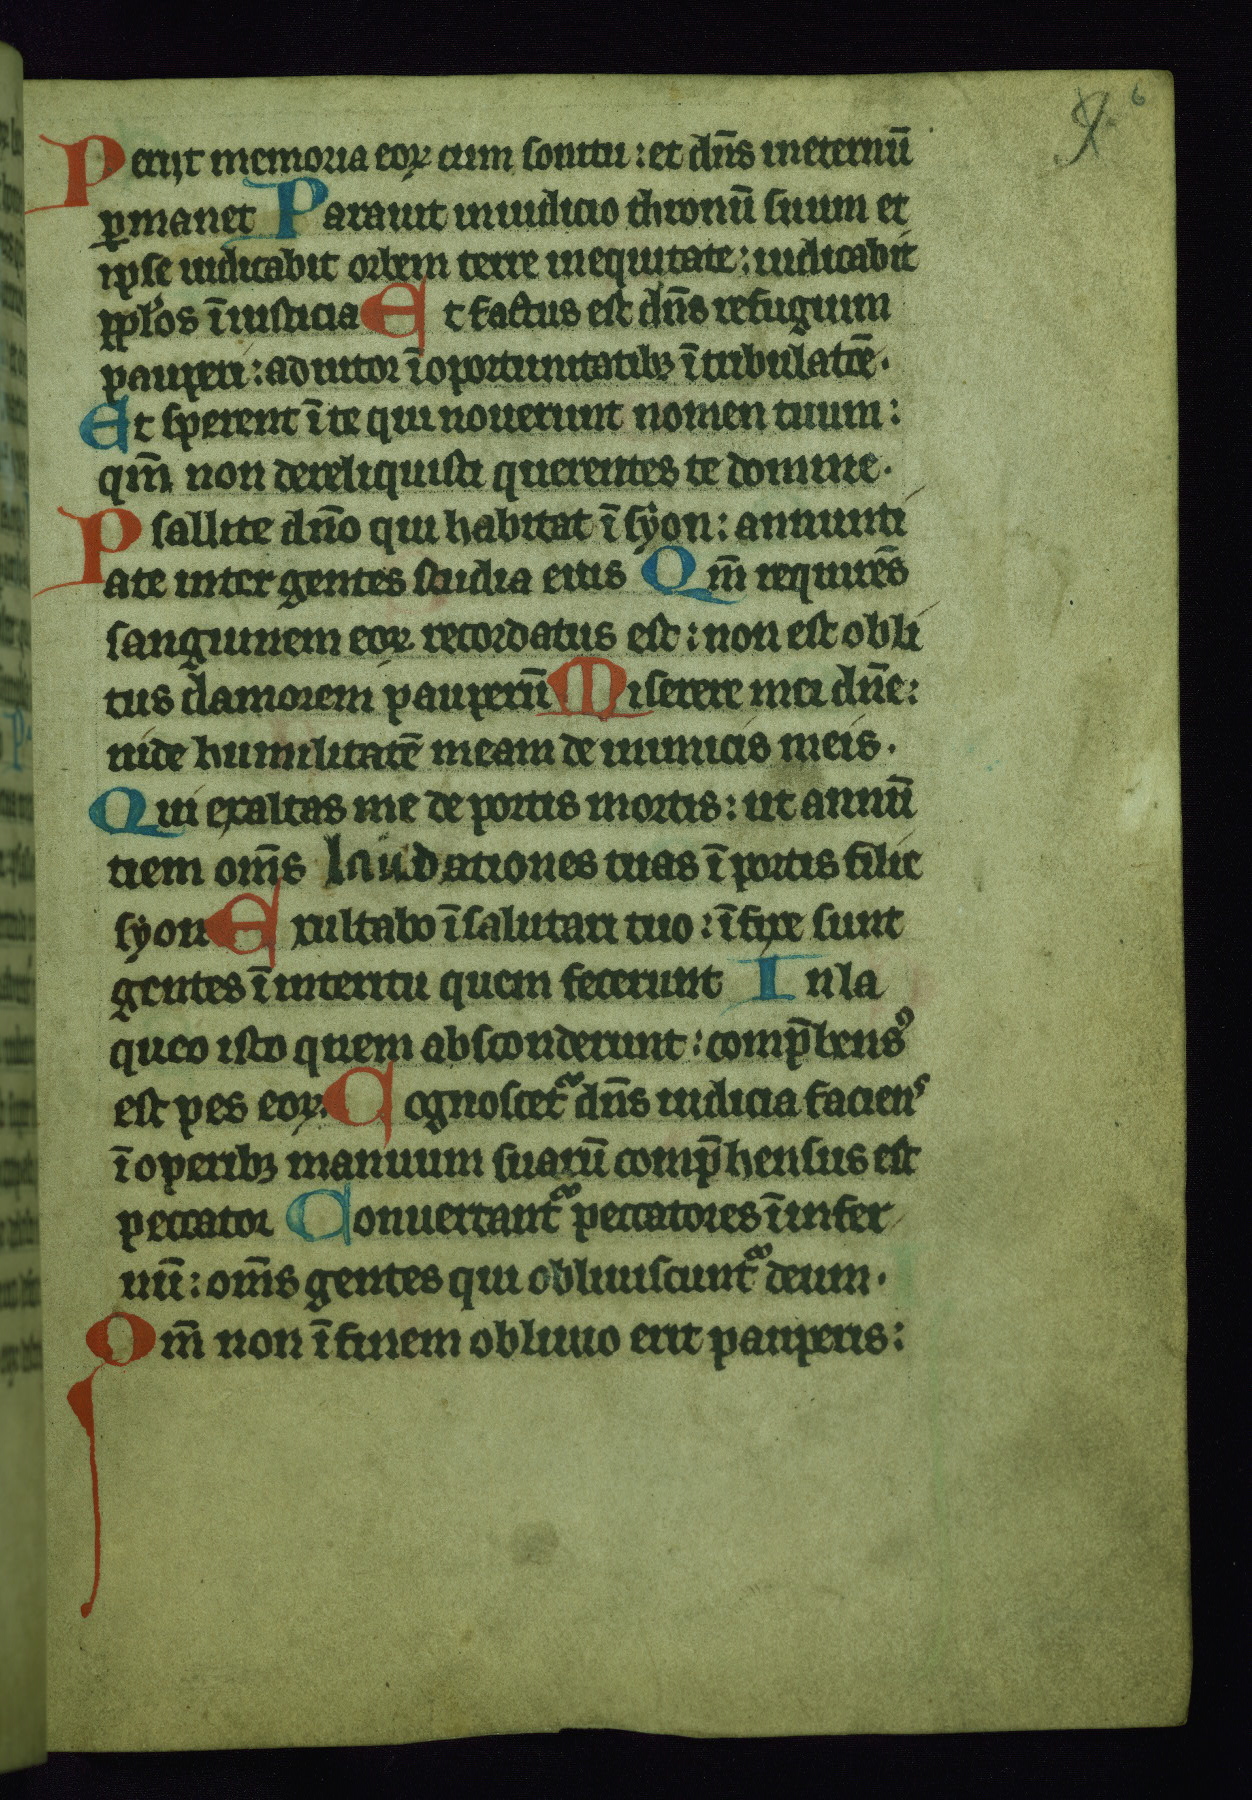 6
Perijt memoria eoꝝ cum sonitu : et dn̄s ineternū
ꝑmanet Parauit iniudicio thronū suum et
ipse iudicabit orbem terre inequitate : iudicabit
pp̄los ī iusticia Et factus est dn̄s refugium
pauperi : adiutor ī oportunitatibꝫ ī tribulatōe .
Et sperent ī te qui nouerunt nomen tuum :
qm̄ non dereliquisti querentes te domine .
Psallite dn̄o qui habitat ī syon : annunti
ate inter gentes studia eius Qm̄ requirēs
sanguinem eoꝝ recordatus est : non est obli
tus clamorem pauperū Miserere mei dn̄e :
uide humilitatē meam de inimicis meis .
Qui exaltas me de portis mortis : ut annū
tiem om̄s laudationes tuas ī portis filie
syon Exultabo ī salutari tuo : īfixe sunt
gentes ī interitu quem fecerunt In la
queo isto quem absconderunt : comp̄hensꝰ
est pes eoꝝ Cognoscet᷑ dn̄s iudicia faciens
ī operibꝫ manuum suarū comp̄hensus est
peccator Conuertant᷑ peccatores ī infer
nū : om̄s gentes qui obliuiscunt᷑ deum .
Qm̄ non ī finem obliuio erit pauperis :